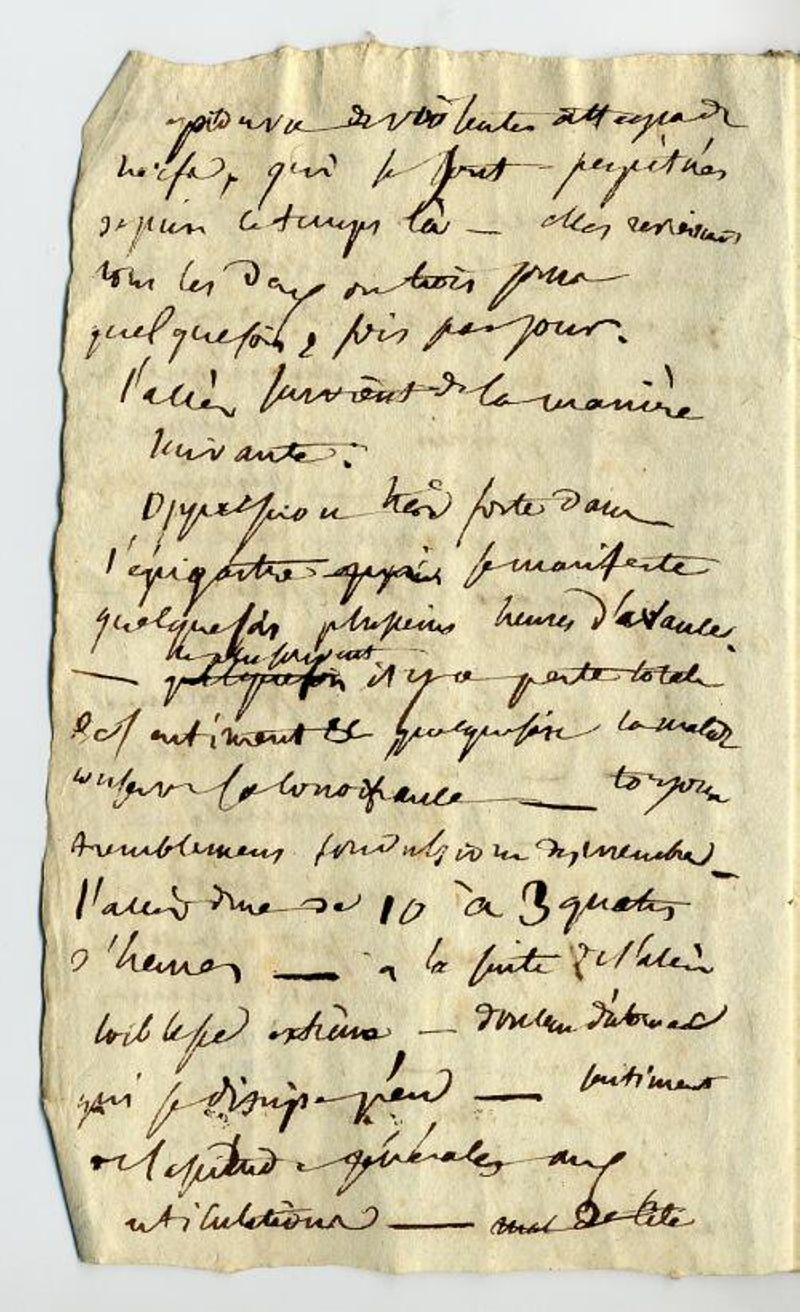 de violentes attaques de
nerfs, qui se sont perpétués
depuis ce temps là — elles reviennent
tous les deux ou trois jours
quelquefois 2 fois par jour.
l'accès survient de la manière
suivante :
oppression très forte dans
l'épigastre se manifeste
quelquefois plusieurs heures d'avance.
le plus souvent
— quelquefois il y a perte totale
de sentiment & quelquefois la malade
conserve sa connoissance — toujours
tremblemens convulsions des membres —
l'accès dure de 10 à 3 quarts
d'heures — a la suite de l'accès
foiblesse extrême — douleur
qui se dissipe — sentiment
de lassitude générale aux
articulations — mal de tête